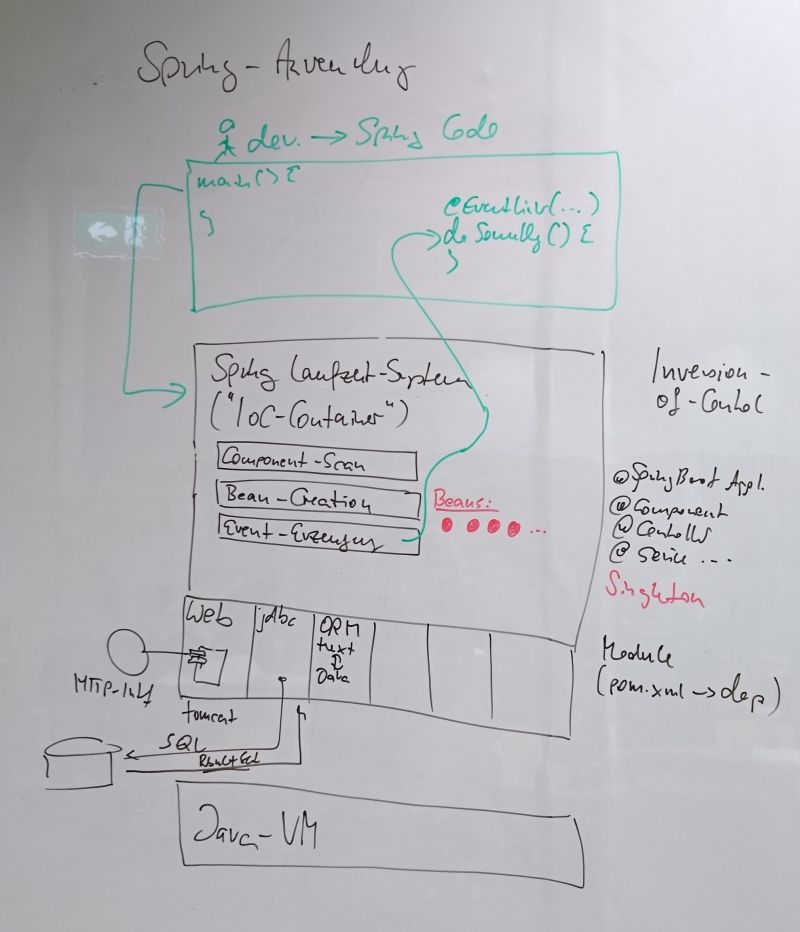 Spring-Anwendung
dev. → Spring Code
main() {
}
@EventList(...)
do Something() {
}
Spring Laufzeit-System
("IoC-Container")
Component-Scan
Bean-Creation
Event-Erzeugung
Beans:
...
Inversion-
of-Control
@SpringBoot Appl.
@Component
@Controller
@Service ...
Singleton
Web
jdbc
ORM
Data
tomcat
Module
(pom.xml → dep)
SQL
Java-VM